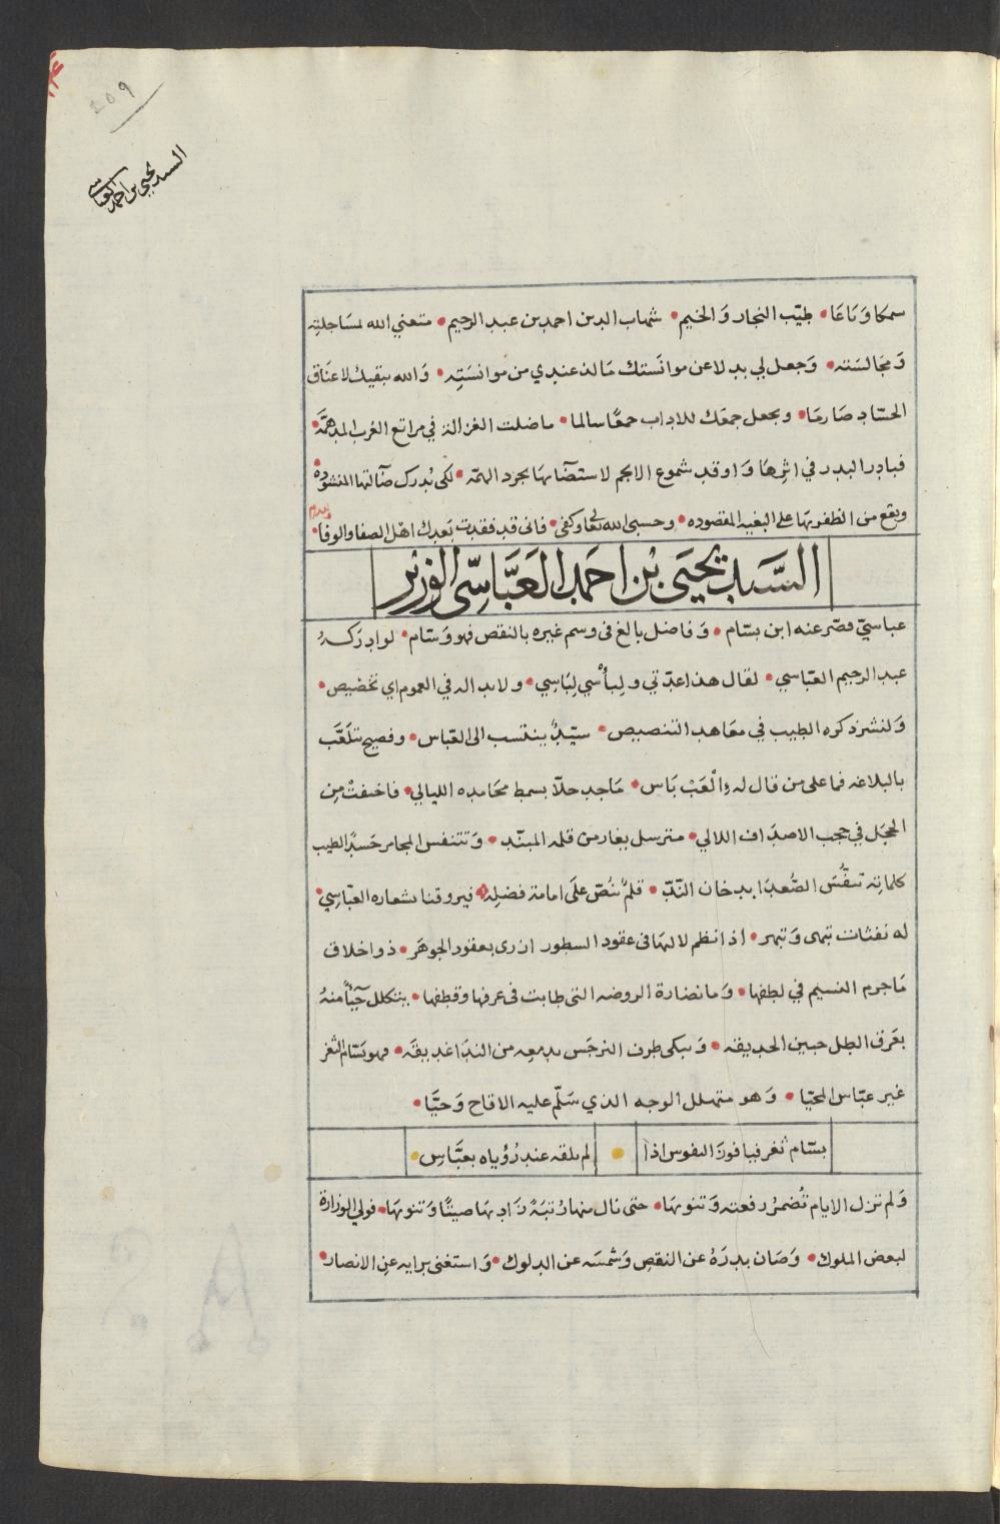 209
السيد يحيى بن احمد العباسي
سمكا وَبَاعَا • طيّب النجار وَ الخيم • شهاب الدين احمد بن عبد الرحيم • متعني الله بمسَاجلته
وَ مجَالسَته • وَجعل لي بدلا عن موانَستك مَالذ عندي من موانسَتِه • وَالله يبقيك لاعنَاق
الحسّاد صَارمَا • ويجعل جمعَك للاداب جمعًا سالما • ما ضلت الغزالة في مراتع الغرب المدهمَّة •
فبادر البدر في اثرِهَا وَاوقد شموع الانجم لاستضَائهَا بجرد الهمّه • لكى يُدرك ضَالتها المنشودة •
ويقع من الظفر بهَا على البغيه المقصوده • وحسبى الله تعالى وكفى • فانى قد فقدت بَعدك اهل الصفا والوفا •
السَّيد يَحيَى بْن احمَد العَبَّاسِّى الوزير
عباسيّ قصّر عنه ابن بسّام • وَ فاضل بالغ فى وسم غيره بالنقص فهو وَسّام • لو ادرَكهُ
عبد الرحيم العبّاسي • لقال هذا عدّتي و لِبأسي لِبَاسِي • ولابد له في العموم اي تخصيص •
وَلنشر ذكره الطيب في معَاهد التنصيص • سيّدٌ ينتسب الى العبّاس • وفصيح تلعَّب
بالبلاغه فما على من قال له وِالْعَبْ بَاس • مَاجد حلاّ بسمط محَامده الليالي • فاختفتْ مِن
الخجل في حجب الاصدَاف اللالي • مترسل يغار من قلمه المهنّد • وَ تتنفس المجامر حَسدًا لطيب
كلماتِه تنفُّسَ الصُّعدَا بدخان النّدّ • قلمٌ نُصّ علَى امامة فضلِه • فيروقنا شعاره العبّاسِي •
له نفثات تبهى وَ تبهر • اذا نظم لالِيهَا فى عقود السطور ازرى بعقود الجوهَر • ذو اخلاق
مَا جرم النسيم في لطفها • وَ مَا نضارة الروضه التى طابت فى عرفها وقطفها • يتكلل حيَاً منهُ
بعَرق الطل جبين الحديقه • وَ يبكى طرف النرجَس بدمعِه من الندَا غديقَه • فهو بسّام الثغر
غير عبّاس المحيّا • وَ هو متهلل الوجه الذي سَلّم عليه الاقاح وَ حيَّا •
بسّام ثغر فيا فوزَ النفوس اذا • لم يلقه عند رُؤياه بعبَّاسِ •
وَلم تزل الايام تُضمرُ رفعته وَ تنويهَا • حتى نال منها رُتبَةً زَاد بهَا صيتًا وَ تنويهَا • فولي الوزارة
لبعض الملوك • وَصَان بدرَهُ عن النقصِ وَشمسَه عن الدلوك • وَ استغنى برايه عن الانصار •